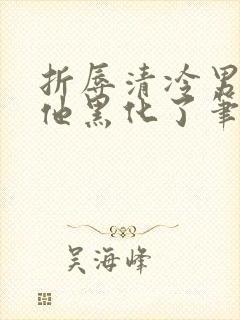 折辱清冷男
他黑化了筆
吴海峰